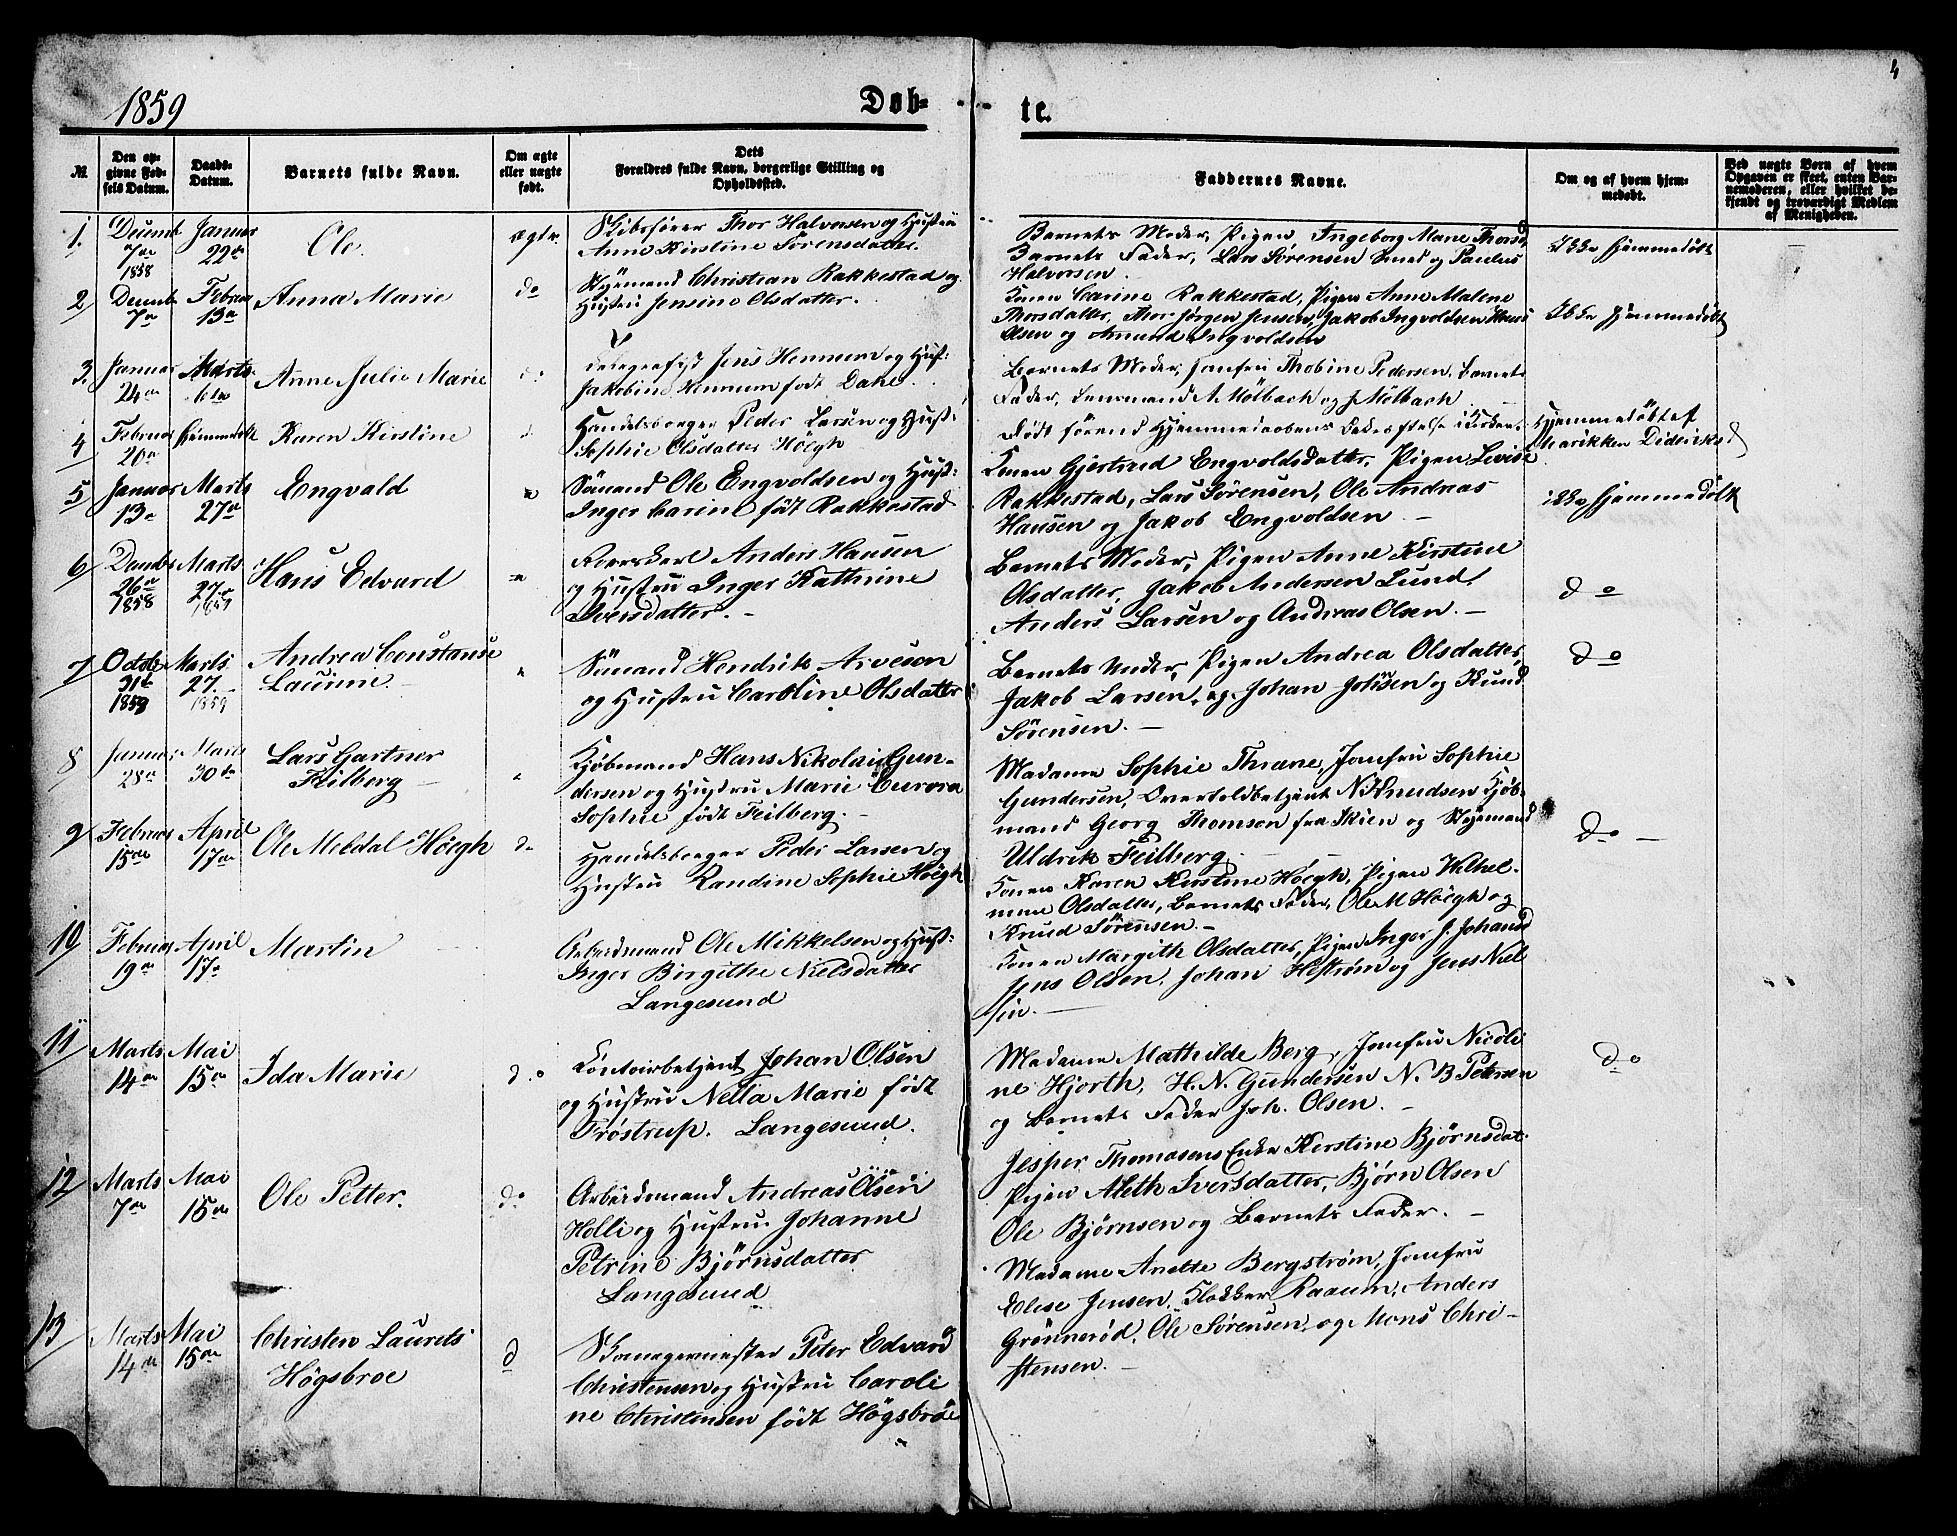 4
1859
Døb-
te.
№
Den op-
givne Fød-
sels Datum.
Daabs-
Datum.
Barnets fulde Navn.
Om ægte
eller uægte
født.
Dets
Forældres fulde Navn, borgerlige Stilling og
Opholdssted.
Faddernes Navne.
Om og af hvem hjem-
medøbt.
Ved uægte Børn af hvem
Opgaven er skeet, enten Bar-
nemoderen, eller hvilket be-
kjendt og troværdigt Medlem
af Menigheden.
1.
7de
1858
Januar
22de
Ole.
ægte.
Skibsfører Thor Halvorsen og Hustru
Anne Kirstine Sörensdatter
Barnets Moder, Pigen Ingeborg Marie Thorsd
Barnets Fader, Lars Sörensen Smed og Paulus
Halvorsen.
hjemmedøbt
2
7de
Februar
13de
Anna Marie
do
Styrmand Christian Rakkestad og
Hustru Jensine Olsdatter.
Konen Carine Rakkestad, Pigen Anne Malene
Thorsdatter, Thor Jörgen Jensen, Jakob Ingvoldsen
Olsen og Amund Ingvoldsen
hjemmedøbt
3
Januar
24de
Marts
6te
Anne Julie Marie
do
Telegrafist Jens Hennum og Hust:
Jakobine Hennum født Dahl.
Barnets Moder, Jomfru Thobine Pedersen, Barnets
Fader, Lensmand A Mölbach og J Mölbach
4
Februar
20de
hjemmedøbt
Karen Kirstine
Handelsborger Peder Larsen og Hust:
Sophie Olsdatter Höegh
Födt förend Hjemmedaabens
Hjemmedøbt af
Marikken Dideriks
5
Januar
13de
Marts
27de
Engvald
Sömand Ole Engvoldsen og Hust:
Inger Carine föd Rakkestad
Konen Gjertrud Engvoldsdatter, Pigen Lovise
Rakkestad, Lars Sörensen, Ole Andreas
Hansen og Jakob Engvoldsen
hjemmedøbt
6
26de
1858
Marts
27de
1859
Hans Edvard
Anders Hansen
og Hustru Inger Kathrine
Iversdatter.
Barnets Moder, Pigen Anne Kirstine
Olsdatter, Jakob Andersen Lund,
Anders Larsen og Andreas Olsen.
do
7
Octobr
31te
Marts
27.
1859
Andrea Constanse
Laurine.
Sömand Hendrik Arveson
og Hustru Caroline Olsdatter
Barnets Moder, Pigen Andrea Olsdatter,
Jakob Larsen, og Johan Johsen og Knud
Sörensen.
do
8
Januar
28de
Marts
30te
Lars Gartner
Feilberg
Kjøbmand Hans Nikolai Gun-
dersen og Hustru Marie Aurora
Sophie födt Feilberg.
Madame Sophie Thrane, Jomfru Sophie
Gundersen, Overtoldbetjent N. Knudsen Kjøb-
mand Georg Thomson fra Skien og Styrmand
Uldrik Feilberg
9
Februar
15de
April
17de
Ole Melodal Höegh
do
Handelsborger Peder Larsen og
Hustru Randine Sophie Höegh
Konen Karen Kirstine Höegh, Pigen Wilhel-
mine Olsdatter, Barnets Fader, Ole M Höegh og
Knud Sörensen.
do
10
Februar
19de
April
17de
Martin
Arbeidsmand Ole Mikkelsen og Hust:
Inger Birgithe Nielsdatter
Langesund
Konen Margith Olsdatter, Pigen Inger J. Johansd
Jens Olsen, Johan Hestrøm og Jens Niel
sen.
11
Marts
14de
Mai
15de
Ida Marie
do
Contoirbetjent Johan Olsen
og Hustru Nella Marie födt
Fröstrup. Langesund.
Madame Mathilde Berg, Jomfru Nicoli
ne Hjorth, H.N. Gundersen N. B Petersen
og Barnets Fader Joh. Olsen.
do
12
Marts
7de
Mai
15de
Ole Petter.
do
Arbeidsmand Andreas Olsen
Holli og Hustru Johanne
Petrine Björnsdatter
Langesund
Jesper Thomasens Enke Kerstine Björnsdat.
Pigen Aleth Iversdatter, Björn Olsen
Ole Björnsen og Barnets Fader.
13
Marts
14de
Mai
15de
Christen Laurits
Högsbroe
do
Skomagermester Peter Edvard
Christensen og Hustru Caroli
ne Christensen födt Högsbroe
Madame Anette Bergström, Jomfru
Elise Jensen, Klokker Raaum, Anders
Grönneröd, Ole Sörensen, og Mons Chri-
stensen.